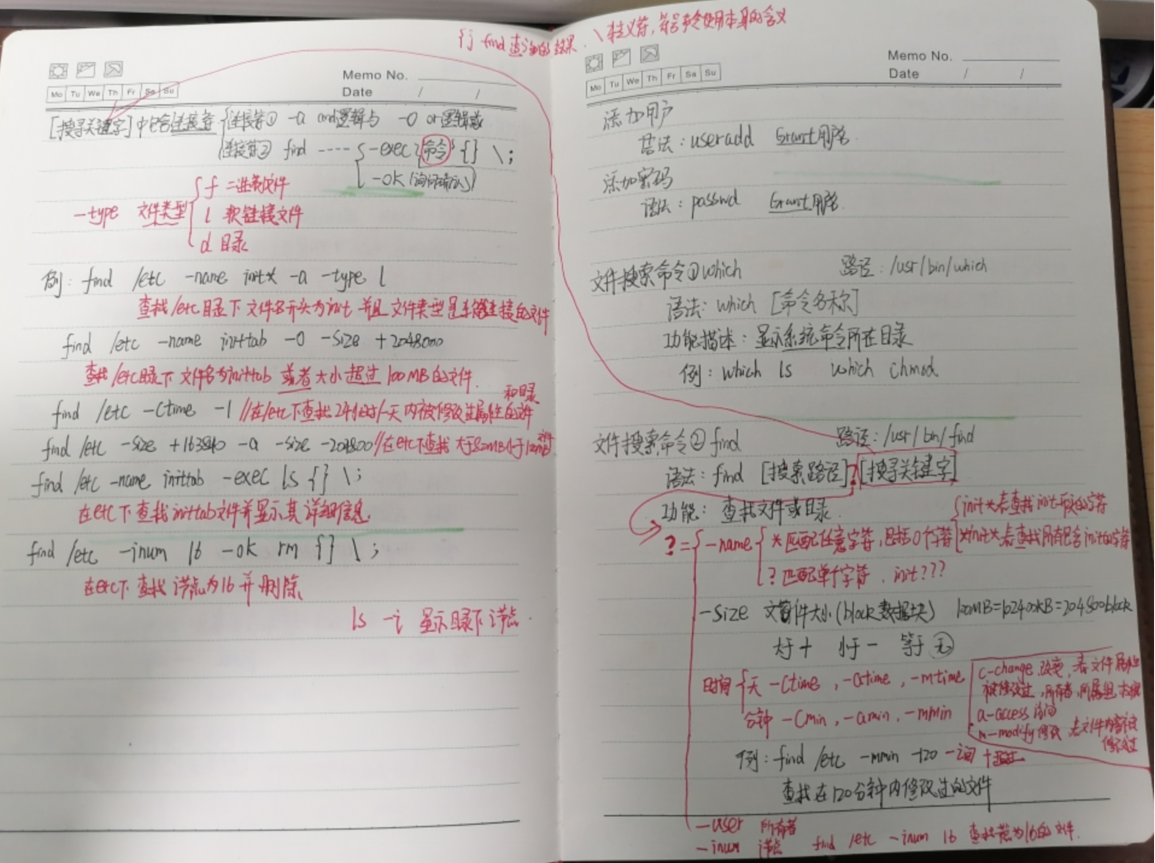 {} find 查询的结果. \ 转义符,符号命令使用本身的含义
Memo No.
Mo Tu We Th Fr Sa Su
Date / /
[搜寻关键字]中包含连接符 连接符① -a and逻辑与 -o or逻辑或
连接符② find ---- -exec 命令 {} \;
-ok (询问确认)
f 二进制文件
-type 文件类型 l 软链接文件
d 目录
例: find /etc -name init* -a -type l
查找/etc目录下文件名开头为init 并且文件类型是软链接的文件
find /etc -name inittab -o -size +204800
查找/etc目录下文件名为inittab 或者大小超过100MB的文件.
find /etc -ctime -1 //在/etc下查找24小时/一天内被修改过属性的文件
和目录
find /etc -size +163840 -a -size -204800 //在etc下查找大于80MB小于100MB
find /etc -name inittab -exec ls {} \;
在etc下查找inittab文件并显示其详细信息.
find /etc -inum 16 -ok rm {} \;
在etc下查找 i节点为16并删除
ls -i 显示目录下i节点.
Memo No.
Mo Tu We Th Fr Sa Su
Date / /
添加用户
语法: useradd 用户名
添加密码
语法: passwd 用户名
文件搜索命令① which 路径: /usr/bin/which
语法: which [命令名称]
功能描述: 显示系统命令所在目录
例: which ls which chmod
文件搜索命令② find 路径: /usr/bin/find
语法: find [搜索路径] ? [搜寻关键字]
功能: 查找文件或目录
init*是查找init一般的字符
?= -name * 匹配任意字符,包括0个字符 *init*是查找所有包含init的字符
? 匹配单个字符. init???
-size 文件大小(block数据块) 100MB=102400KB=204800block
大于+ 小于- 等于 无
时间 天 -ctime, -atime, -mtime
分钟 -cmin, -amin, -mmin
c-change 改变, 表文件属性
被修改过,所有者,所属组,权限
a-access 访问
m-modify 修改, 表文件内容被
修改过
例: find /etc -mmin -120 -之内 +超过
查找在120分钟内修改过的文件
-user 所有者
-inum i节点 find /etc -inum 16 查找i节点为16的文件.